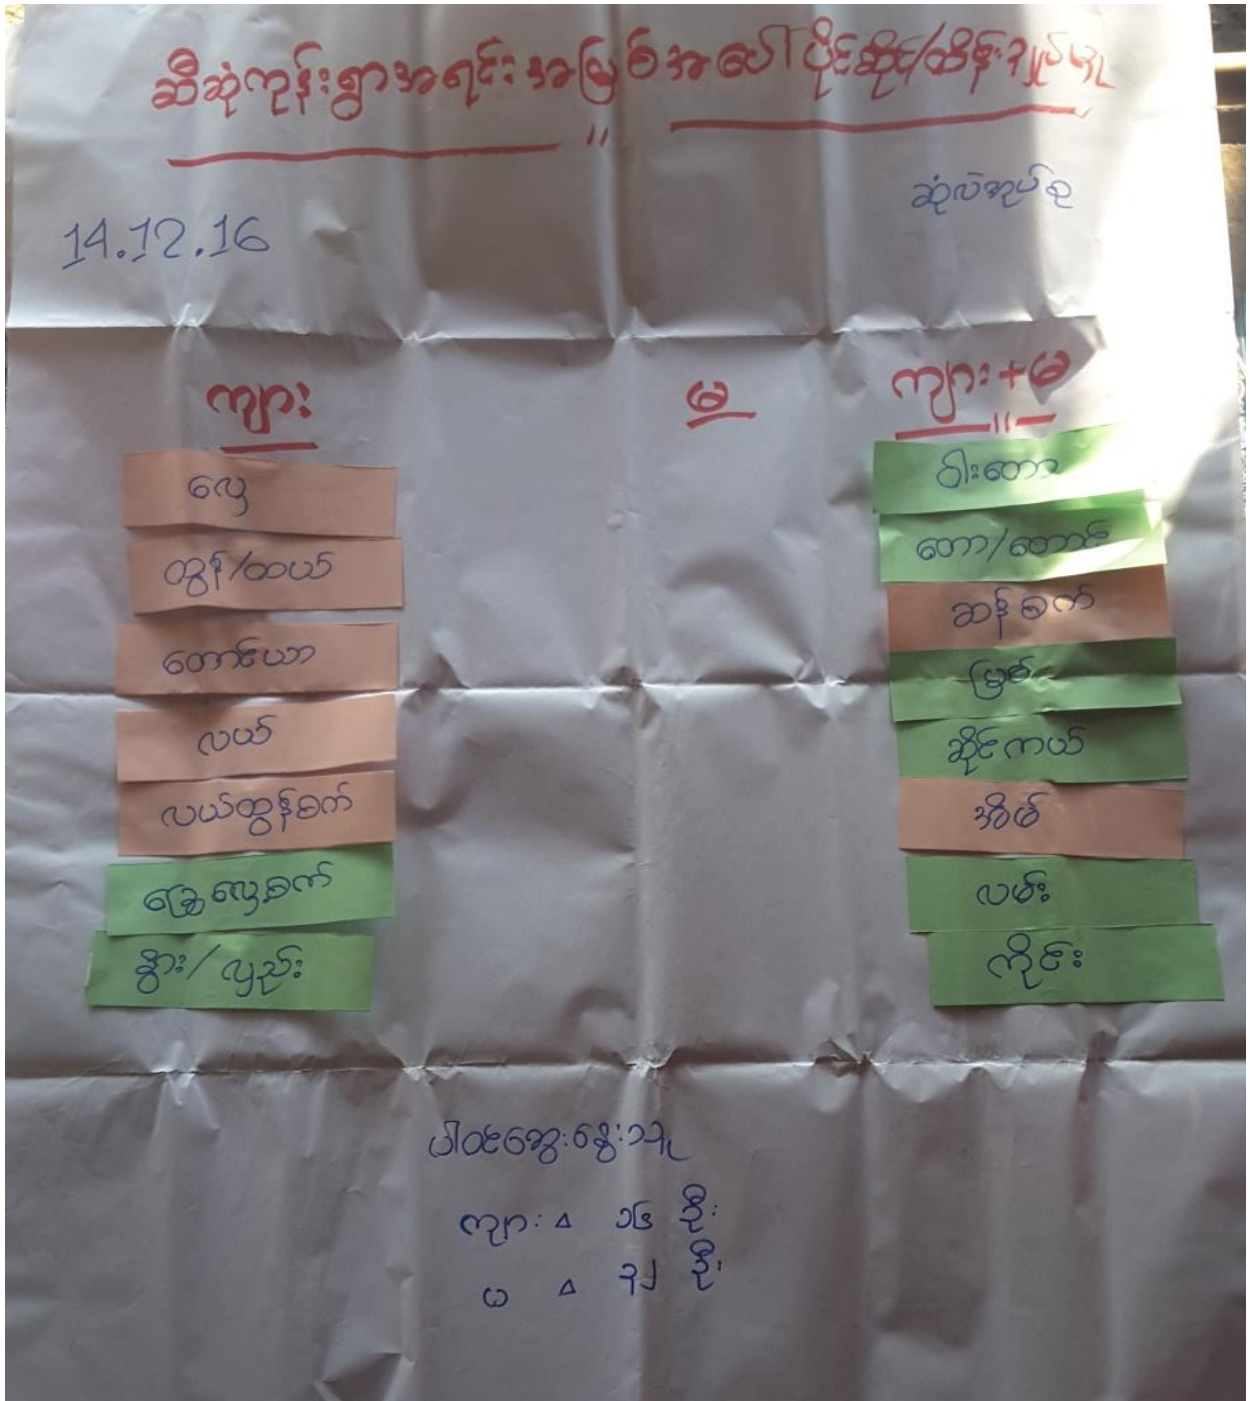 ဆီဆုံကုန်းရွာအရင်းအမြစ်အပေါ်ပိုင်ဆိုင်/ထိန်းချုပ်မှု
ဆုံလဲအုပ်စု
14.12.16
ကျား
မ
ကျား+မ
လှေ
ထွန်/ထယ်
တောင်ယာ
လယ်
လယ်ထွန်စက်
ခြွေလှေ့စက်
နွား/လှည်း
ဝါးတော
တော/တောင်
ဆန်စက်
မြစ်
ဆိုင်ကယ်
အိမ်
လမ်း
ကိုင်း
ပါဝင်ဆွေးနွေးသူ
ကျား ၁၆ ဦး
မ ၃၂ ဦး